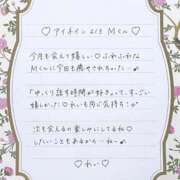 ♡ アイナイン よりMくん ♡
今月も会えて嬉しい♡ ふわふわな
Mくんに今日も癒やされちゃった…
「ゆっくり話す時間が好き」って、すごい
嬉しかった♡ れいも同じ気持ち♡
次も会えるの楽しみにしてるね♡
したいこともあるから…ね…
♡ れい ♡